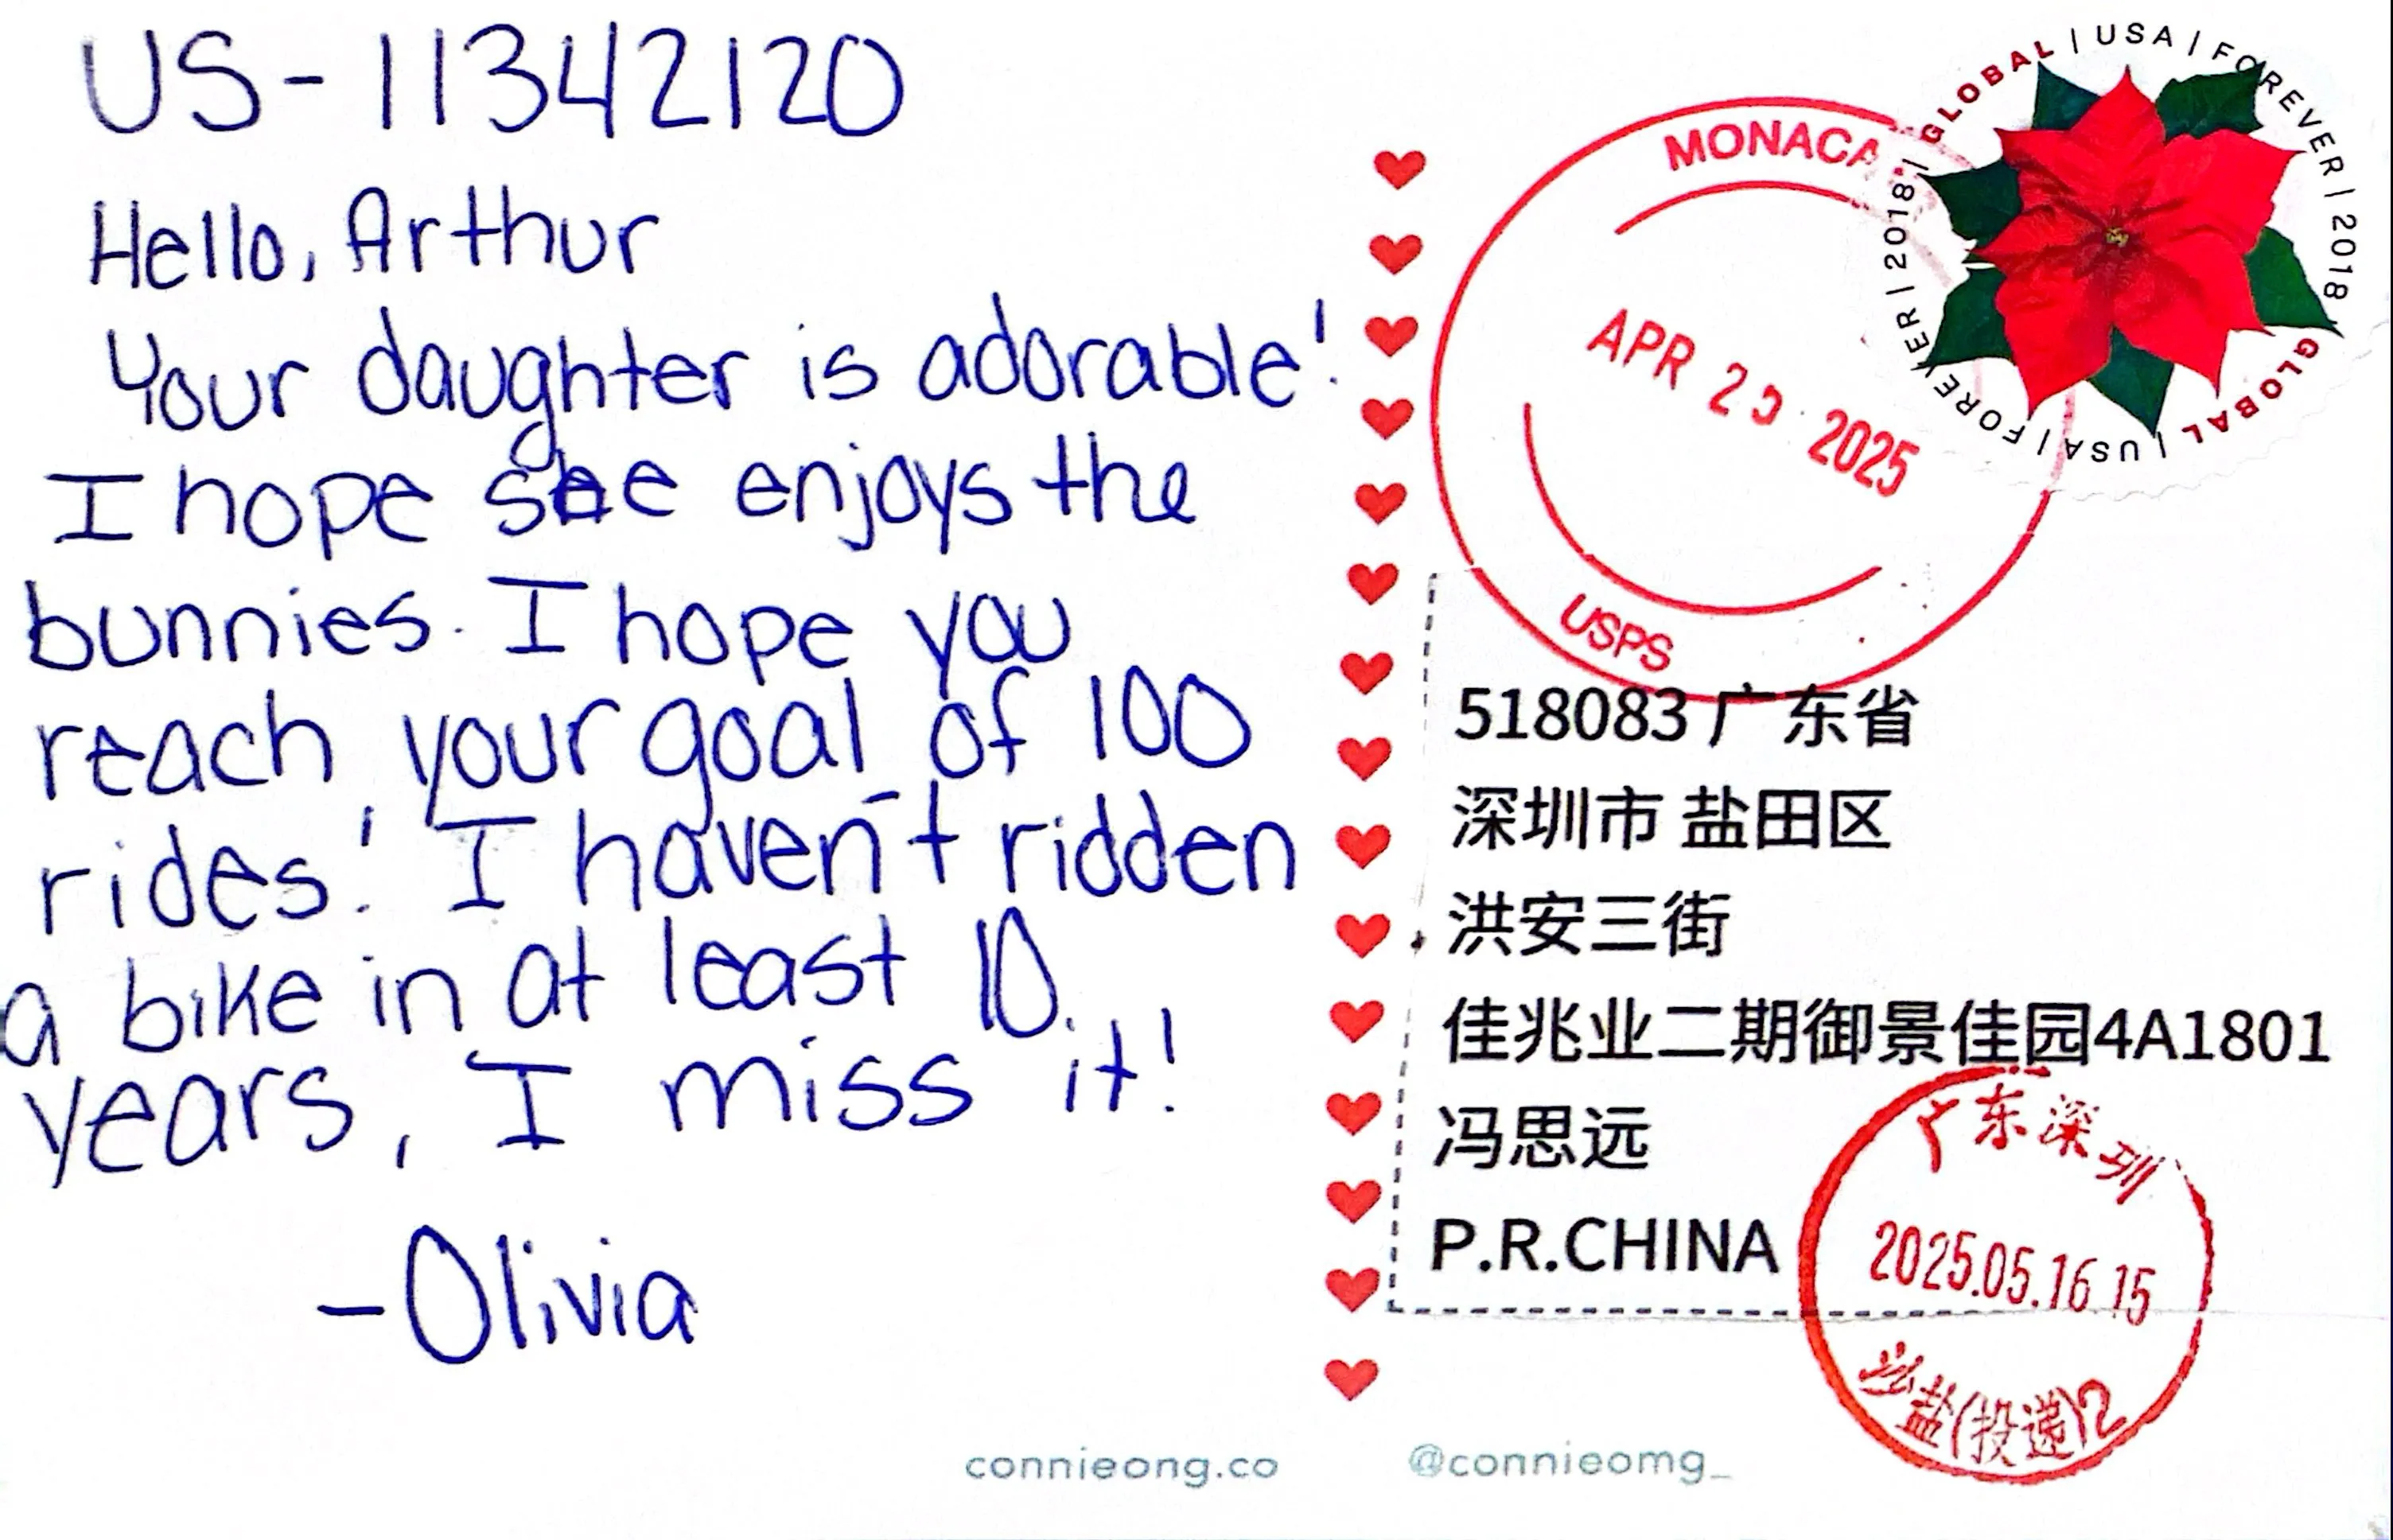 US-11342120
Hello, Arthur
Your daughter is adorable!
I hope she enjoys the
bunnies. I hope you
reach your goal of 100
rides! I haven't ridden
a bike in at least 10
years, I miss it!
-Olivia
connieong.co
GLOBAL | USA | FOREVER | 2018
GLOBAL | USA | FOREVER | 2018 |
MONACA
APR 2 2025
USPS
518083 广东省
深圳市 盐田区
洪安三街
佳兆业二期御景佳园4A1801
冯思远
P.R.CHINA
广东深圳
2025.05.16.15
沙盐(投递)2
@connieomg_